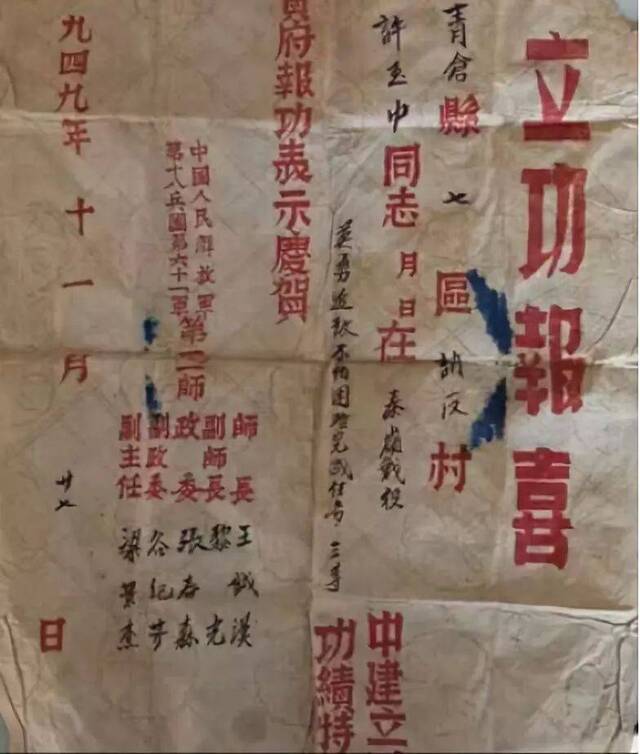 立功報喜
青倉縣七區胡村
許玉中同志月日在秦嶺戰役中建立
英勇追敌不怕困难完成任务三等功績特
府報功表示慶賀
中國人民解放軍
第十八兵團第六十一軍第師
師長王誠漢
副師長黎光
政委張春森
副政委谷紀
副主任梁
九四九年十一月廿七日